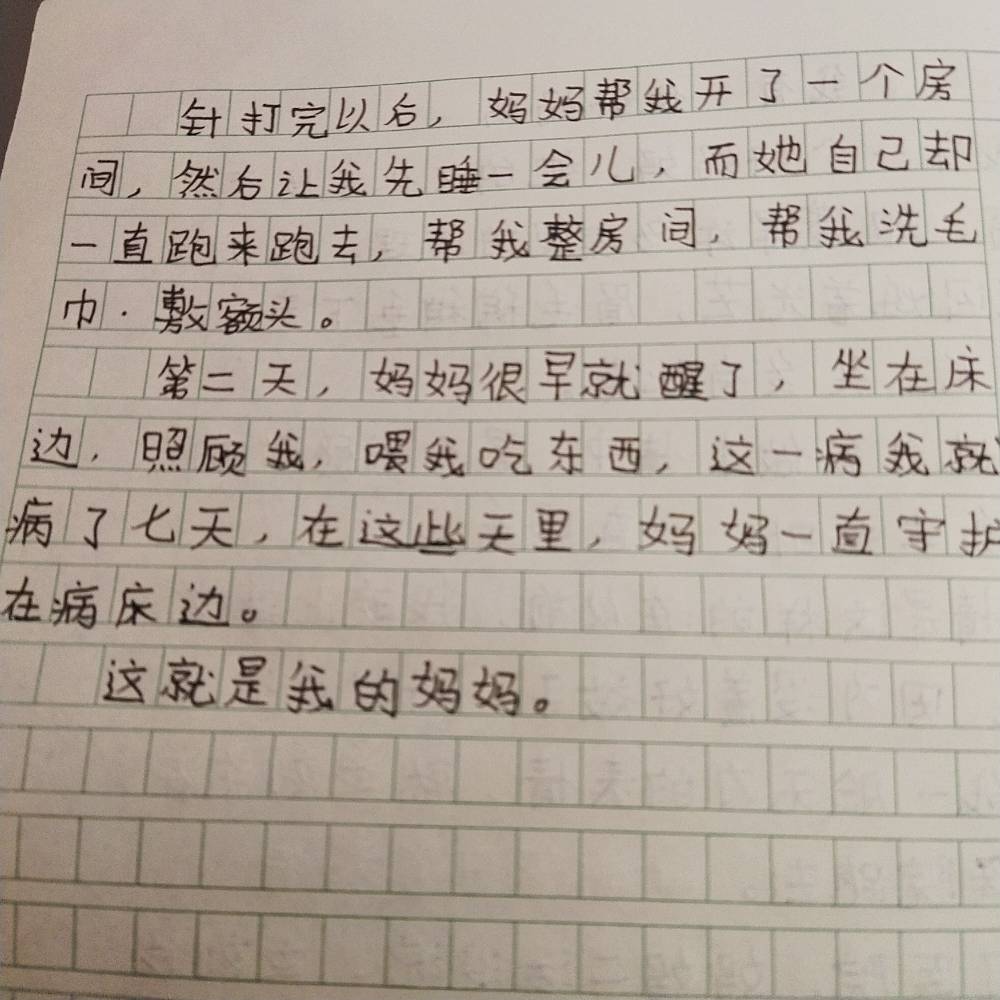 针打完以后，妈妈帮我开了一个房
间，然后让我先睡一会儿，而她自己却
一直跑来跑去，帮我整房间，帮我洗毛
巾．敷额头。
第二天，妈妈很早就醒了，坐在床
边，照顾我，喂我吃东西，这一病我就
病了七天，在这些天里，妈妈一直守护
在病床边。
这就是我的妈妈。